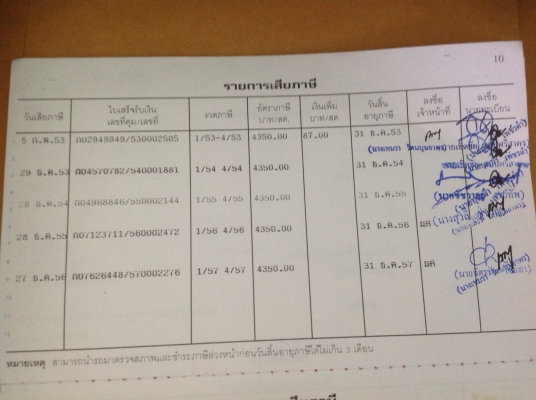 10
รายการเสียภาษี
วันเสียภาษี ใบเสร็จรับเงิน เลขที่คุม/เลขที่ งวดภาษี อัตราภาษี บาท/สต. เงินเพิ่ม บาท/สต. วันสิ้น อายุภาษี ลงชื่อ เจ้าหน้าที่ ลงชื่อ นายทะเบียน
5 ก.พ.53 ก02949949/530002505 1/53-4/53 4350.00 87.00 31 ธ.ค.53
29 ธ.ค.53 ก04570782/540001881 1/54 4/54 4350.00 31 ธ.ค.54
28 ธ.ค.54 ก04968846/550002144 1/55 4/55 4350.00 31 ธ.ค.55
28 ธ.ค.55 ก07123711/560002472 1/56 4/56 4350.00 31 ธ.ค.56 มค
27 ธ.ค.56 ก07626448/570002276 1/57 4/57 4350.00 31 ธ.ค.57 มค
หมายเหตุ สามารถนำรถมาตรวจสภาพและชำระภาษีล่วงหน้าก่อนวันสิ้นอายุภาษีได้ไม่เกิน 3 เดือน